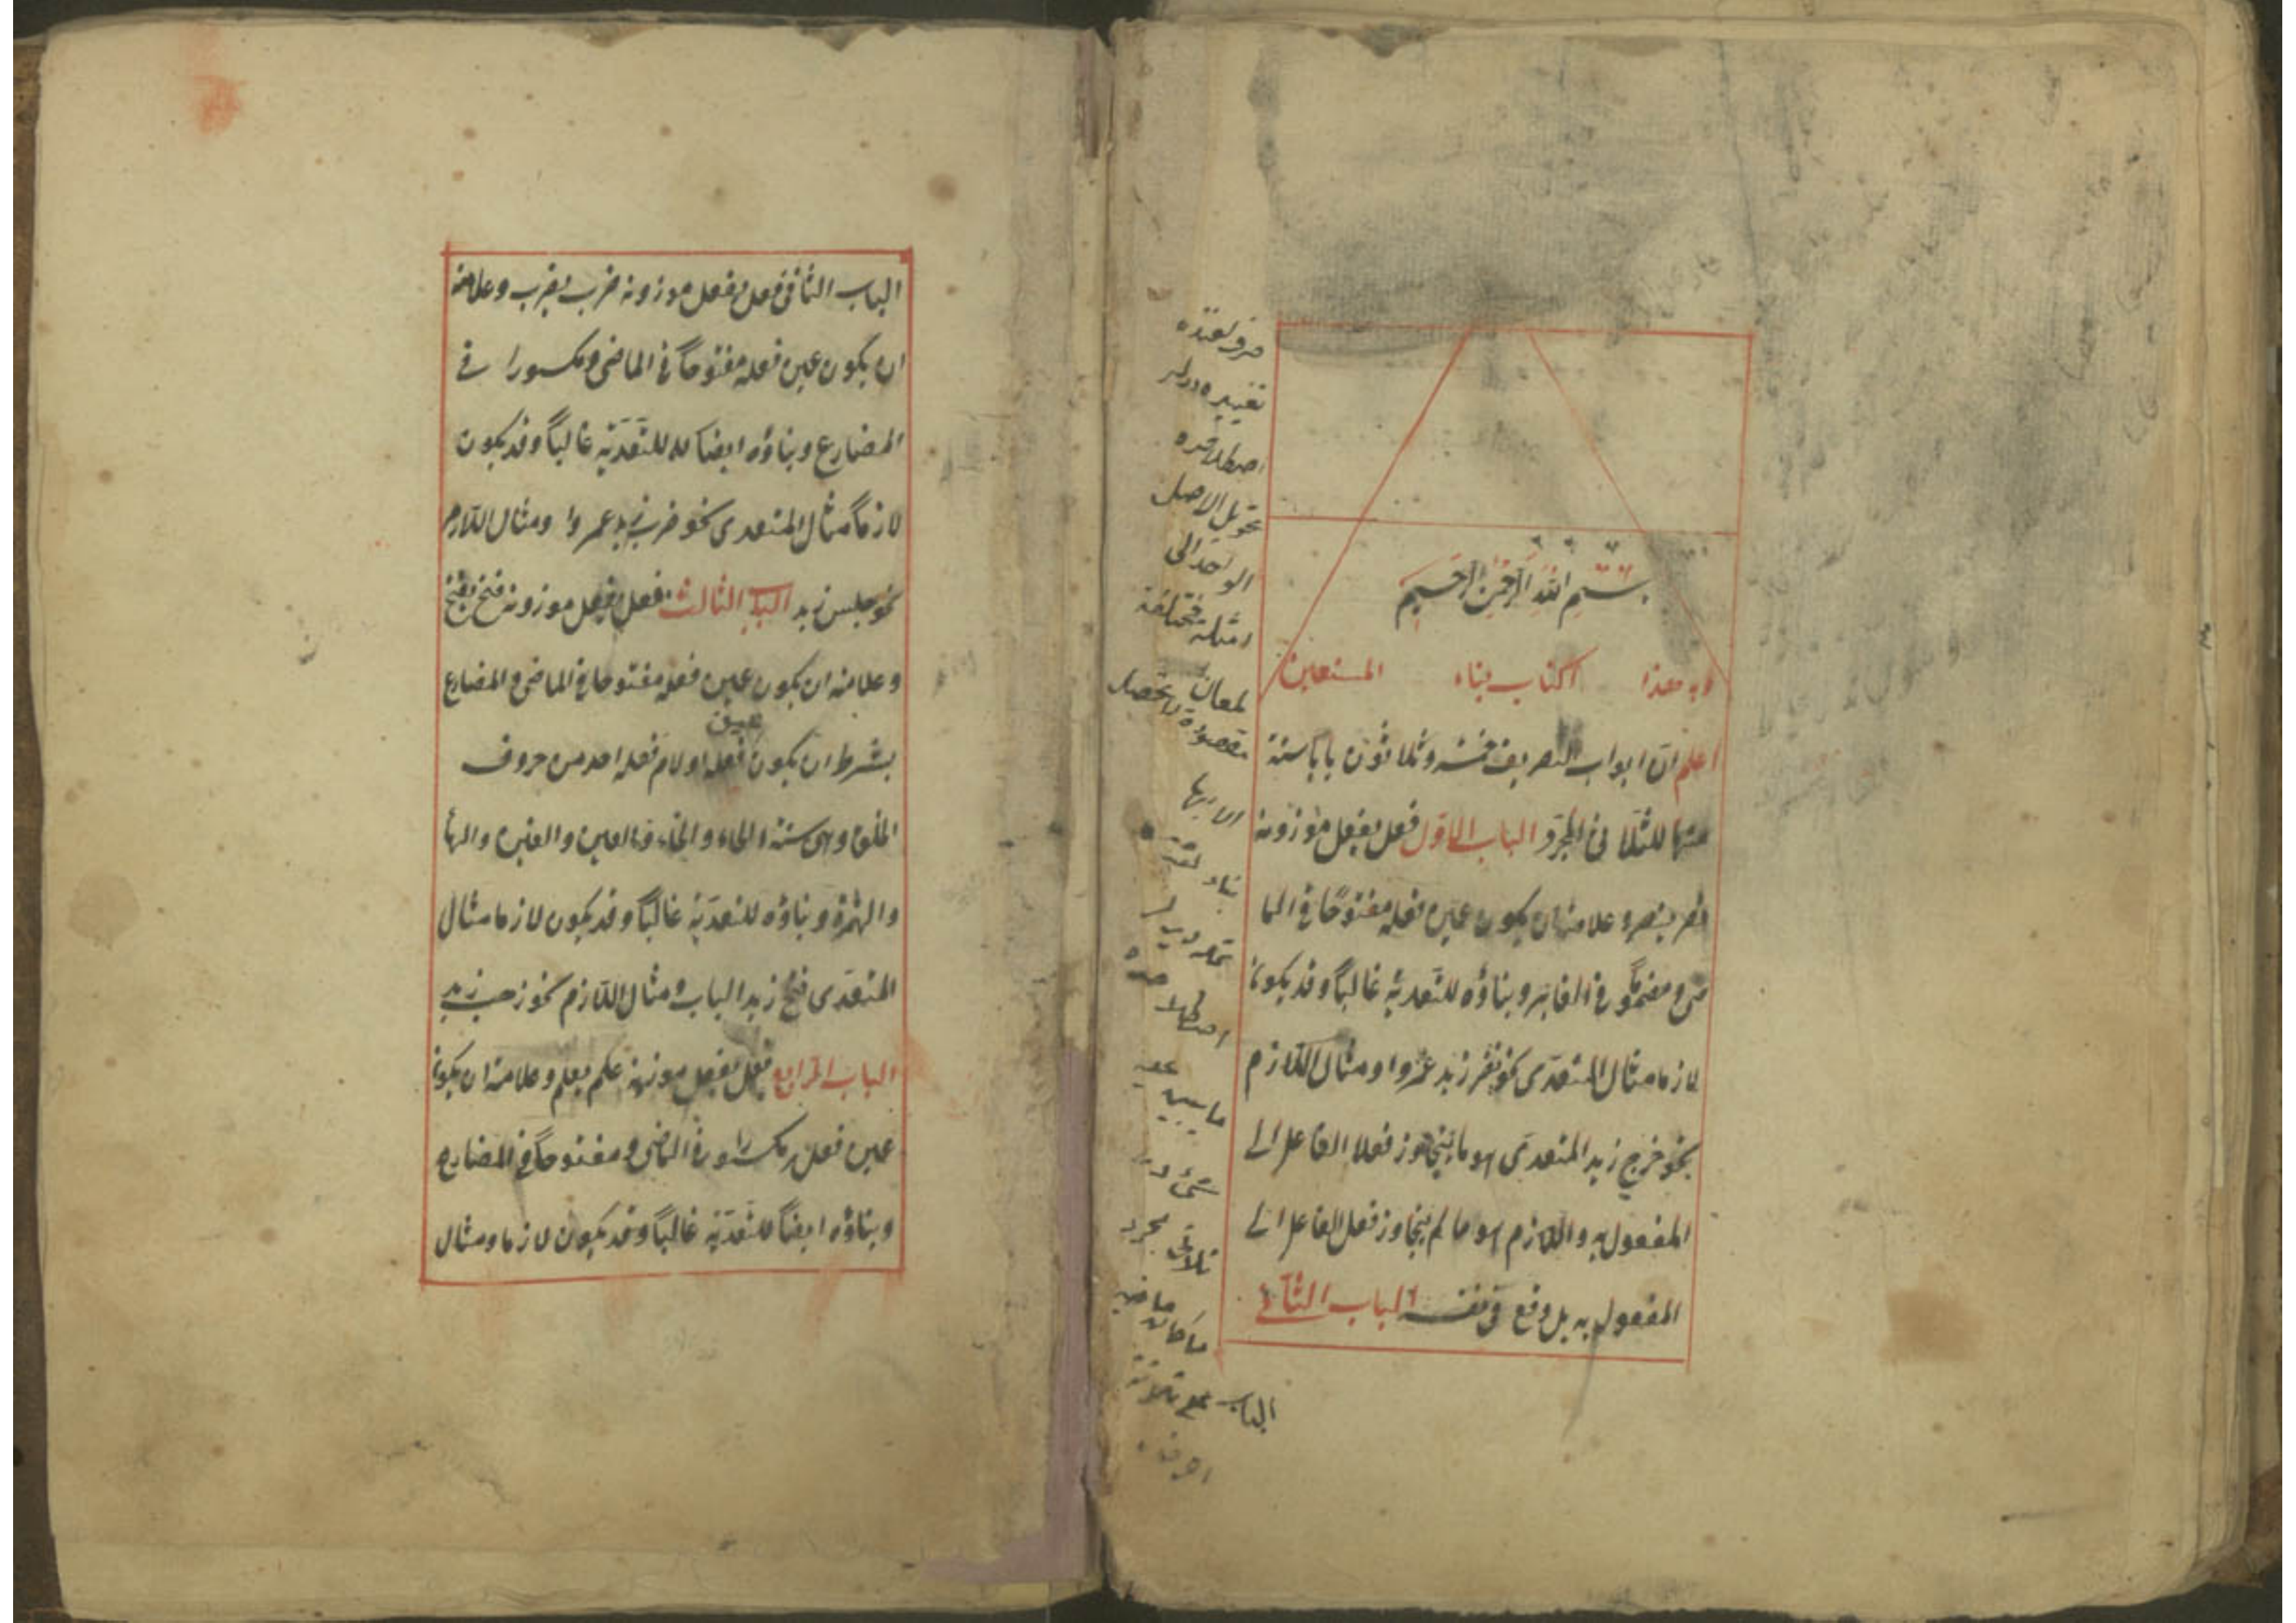 بسم الله الرحمن الرحيم
وبه هذا كتاب بناء المستعين
اعلم ان ابواب التصريف خمسه وثلاثون بابا ستة
منها للثلاثى المجرد الباب الاول فعل يفعل موزونه
نصر ينصر وعلامته ان يكون عين فعله مفتوحًا فى الما
ضى و مضمومًا فى الغابر وبناؤه للتعدية غالبًا وقد يكون
لازما مثال المتعدى نحو نصر زيد عمروا ومثال اللازم
نحو خرج زيد المتعدى هو ما يتجاوز فعل الفاعل الى
المفعول به واللازم هو ما لم يتجاوز فعل الفاعل الى
المفعول به بل وقع فى نفسه الباب الثانى
تحويل الاصل
الواحد الى
امثلة مختلفة
لمعان
مقصودة لا تحصل
الا بها
ثلاثى مجرد
ما كان ماضيه
على ثلاثة
الباب
احرف
الباب الثانى فعل يفعل موزونه ضرب يضرب وعلامته
ان يكون عين فعله مفتوحًا فى الماضى ومكسورا فى
المضارع وبناؤه ايضا للتعدّية غالبًا وقد يكون
لازمًا مثال المتعدى نحو ضرب زيد عمروا ومثال اللازم
نحو جلس زيد الباب الثالث فعل يفعل موزونه فتح يفتح
وعلامته ان يكون عين فعله مفتوحا فى الماضى والمضارع
عين
بشرط ان يكون فعله او لام فعله احد من حروف
الحلق وهى ستة الحاء والخاء والعين والغين والهاء
والهمزة وبناؤه للتعدّية غالبًا وقد يكون لازما مثال
المتعدّى فتح زيد الباب ومثال اللازم نحو زهب زيد
الباب الرابع فعل يفعل موزنه علم يعلم وعلامته ان يكون
عين فعله مكسورا فى الماضى و مفتوحًا فى المضارع
وبناؤه ايضًا للتعدّية غالبًا وقد يكون لازما ومثال